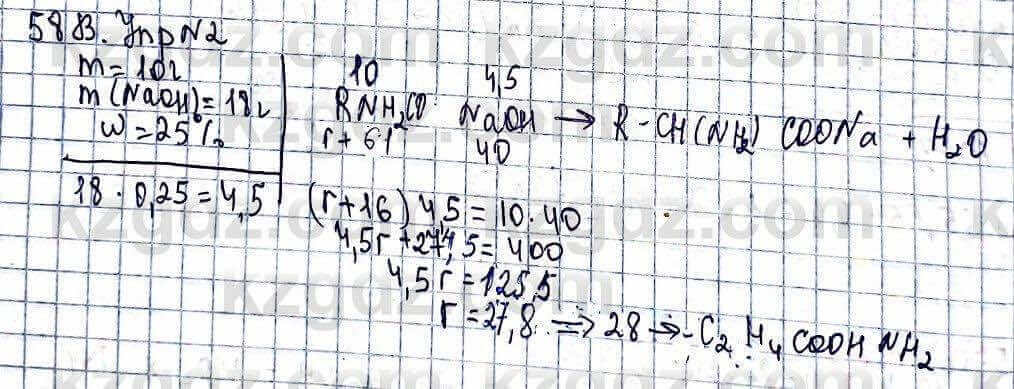 58В. Упр N2
m = 10г
m(NaOH) = 18г
W = 25%
18 · 0,25 = 4,5
10 4,5
RNH₂CO NaOH → R - CH(NH₂) COONa + H₂O
r + 61 40
(r+16) 4,5 = 10 · 40
4,5r + 274,5 = 400
4,5r = 125,5
r = 27,8 => 28 → -C₂H₄COOHNH₂